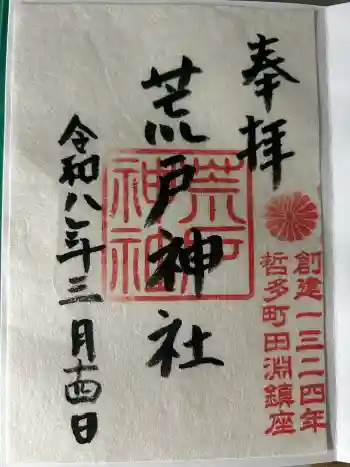 奉拝
創建一三二四年
哲多町田淵鎮座
荒戸神社
荒戸神社
令和八年三月十四日